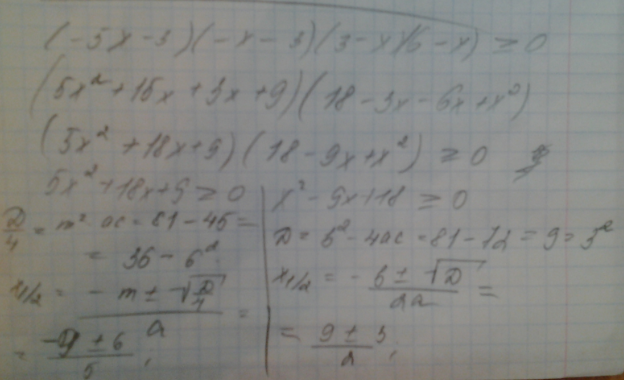 (-5x-3)(-x-3)(3-x)(6-x) ≥ 0
(5x²+15x+3x+9)(18-3x-6x+x²)
(5x²+18x+9)(18-9x+x²) ≥ 0
5x²+18x+9 ≥ 0
D/4 = m² ac = 81-45 =
= 36 - 6²
x1/2 = (-m ± √(D/4))/a =
= (-9 ± 6)/5 ;
x²-9x+18 ≥ 0
D = b²-4ac = 81-72 = 9 = 3²
x1/2 = -(b ± √D)/2a =
= (9 ± 3)/2 ;